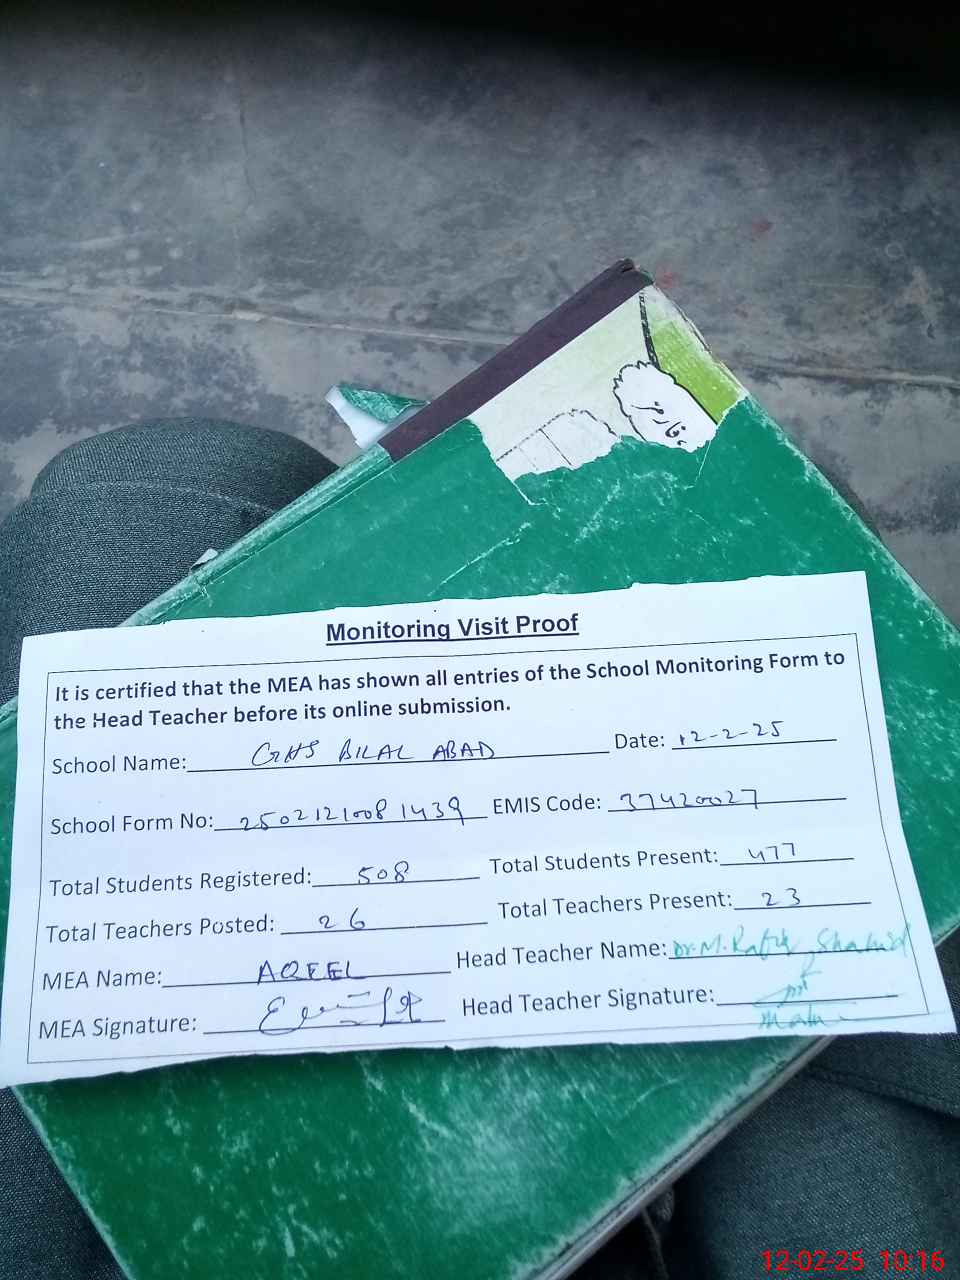 Monitoring Visit Proof
It is certified that the MEA has shown all entries of the School Monitoring Form to
the Head Teacher before its online submission.
School Name: GHS BILAL ABAD Date: 12-2-25
School Form No: 25021210081439 EMIS Code: 37420027
Total Students Registered: 508 Total Students Present: 477
Total Teachers Posted: 26 Total Teachers Present: 23
MEA Name: AQEEL Head Teacher Name: Dr. M. Shahid
MEA Signature: Head Teacher Signature:
12-02-25 10:16